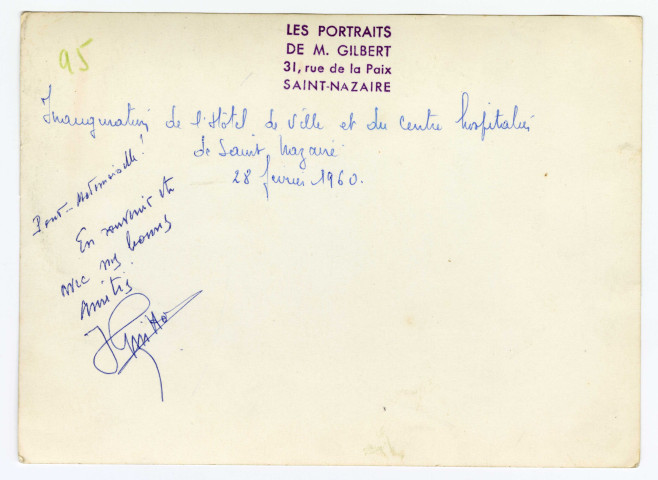 95
LES PORTRAITS
DE M. GILBERT
31, rue de la Paix
SAINT-NAZAIRE
Inauguration de l'Hôtel de Ville et du centre hospitalier
de Saint Nazaire
28 février 1960.
Pour Mademoiselle !
En souvenir et
avec mes bonnes
amitiés.